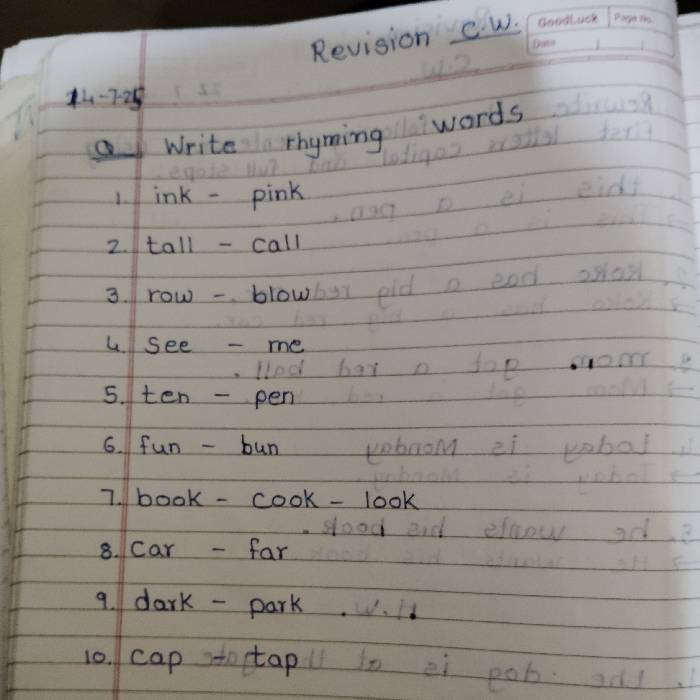 Revision C.W.
GoodLuck Page No.
Date
14-7-25
Q Write rhyming words
1. ink - pink
2. tall - call
3. row - blow
4. see - me
5. ten - pen
6. fun - bun
7. book - cook - look
8. car - far
9. dark - park
10. cap - tap